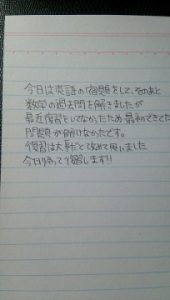 今日は英語の宿題をして、そのあと
数学の過去問を解きましたが
最近復習をしてなかったため最初できてた
問題が解けなかったです。
復習は大事だと改めて思いました
今日帰って復習します!!